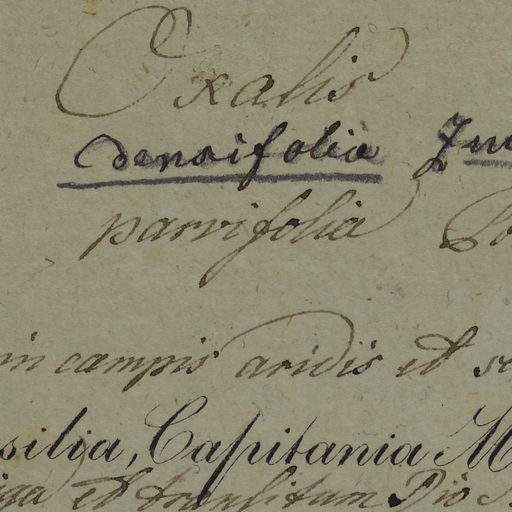 Oxalis
densifolia Zuc
parvifolia
in campis aridis et
silia, Capitania M
et transitum Rio